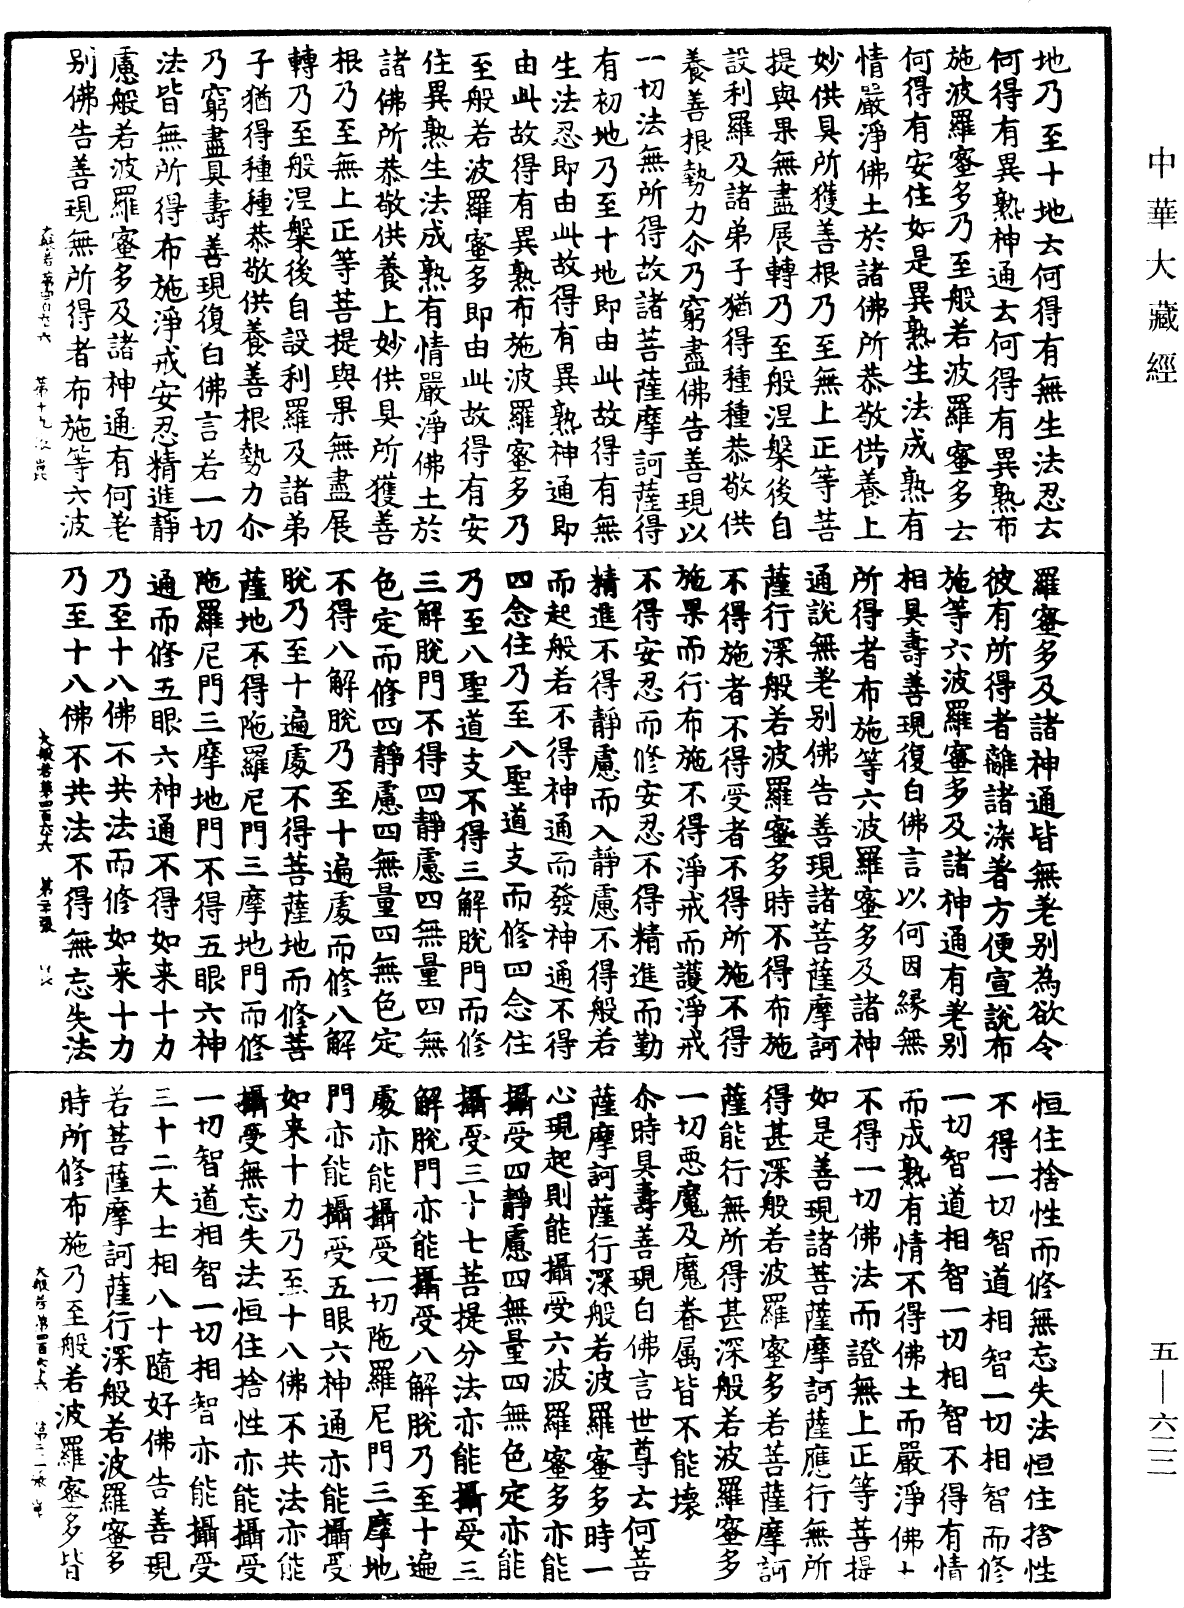 中華大藏經
地乃至十地去何得有無生法忍去
何得有異熟神通去何得有異熟布
施波羅蜜多乃至般若波羅蜜多去
何得有安住如是異熟生法成熟有
情嚴淨佛土於諸佛所恭敬供養上
妙供具所獲善根乃至無上正等菩
提與果無盡展轉乃至般涅槃後自
設利羅及諸弟子猶得種種恭敬供
養善根勢力尒乃窮盡佛告善現以
一切法無所得故諸菩薩摩訶薩得
有初地乃至十地即由此故得有無
生法忍即由此故得有異熟神通即
由此故得有異熟布施波羅蜜多乃
至般若波羅蜜多即由此故得有安
住異熟生法成熟有情嚴淨佛土於
諸佛所恭敬供養上妙供具所獲善
根乃至無上正等菩提與果無盡展
轉乃至般涅槃後自設利羅及諸弟
子猶得種種恭敬供養善根勢力尒
乃窮盡具壽善現復白佛言若一切
法皆無所得布施淨戒安忍精進靜
慮般若波羅蜜多及諸神通有何差
別佛告善現無所得者布施等六波
羅蜜多及諸神通皆無差別為欲令
彼有所得者離諸染著方便宣說布
施等六波羅蜜多及諸神通有差別
相具壽善現復白佛言以何因緣無
所得者布施等六波羅蜜多及諸神
通說無差別佛告善現諸菩薩摩訶
薩行深般若波羅蜜多時不得布施
不得施者不得受者不得所施不得
施果而行布施不得淨戒而護淨戒
不得安忍而修安忍不得精進而勤
精進不得靜慮而入靜慮不得般若
而起般若不得神通而發神通不得
四念住乃至八聖道支而修四念住
乃至八聖道支不得三解脫門而修
三解脫門不得四靜慮四無量四無
色定而修四靜慮四無量四無色定
不得八解脫乃至十遍處而修八解
脫乃至十遍處不得菩薩地而修菩
薩地不得陁羅尼門三摩地門而修
陁羅尼門三摩地門不得五眼六神
通而修五眼六神通不得如来十力
乃至十八佛不共法而修如来十力
乃至十八佛不共法不得無忘失法
大般若第四百六十六 第二十張
恒住捨性而修無忘失法恒住捨性
不得一切智道相智一切相智而修
一切智道相智一切相智不得有情
而成熟有情不得佛土而嚴淨佛土
不得一切佛法而證無上正等菩提
如是善現諸菩薩摩訶薩應行無所
得甚深般若波羅蜜多若菩薩摩訶
薩能行無所得甚深般若波羅蜜多
一切惡魔及魔眷属皆不能壞
尒時具壽善現白佛言世尊去何菩
薩摩訶薩行深般若波羅蜜多時一
心現起則能攝受六波羅蜜多亦能
攝受四靜慮四無量四無色定亦能
攝受三十七菩提分法亦能攝受三
解脫門亦能攝受八解脫乃至十遍
處亦能攝受一切陁羅尼門三摩地
門亦能攝受五眼六神通亦能攝受
如来十力乃至十八佛不共法亦能
攝受無忘失法恒住捨性亦能攝受
一切智道相智一切相智亦能攝受
三十二大士相八十隨好佛告善現
若菩薩摩訶薩行深般若波羅蜜多
時所修布施乃至般若波羅蜜多皆
五—六三二